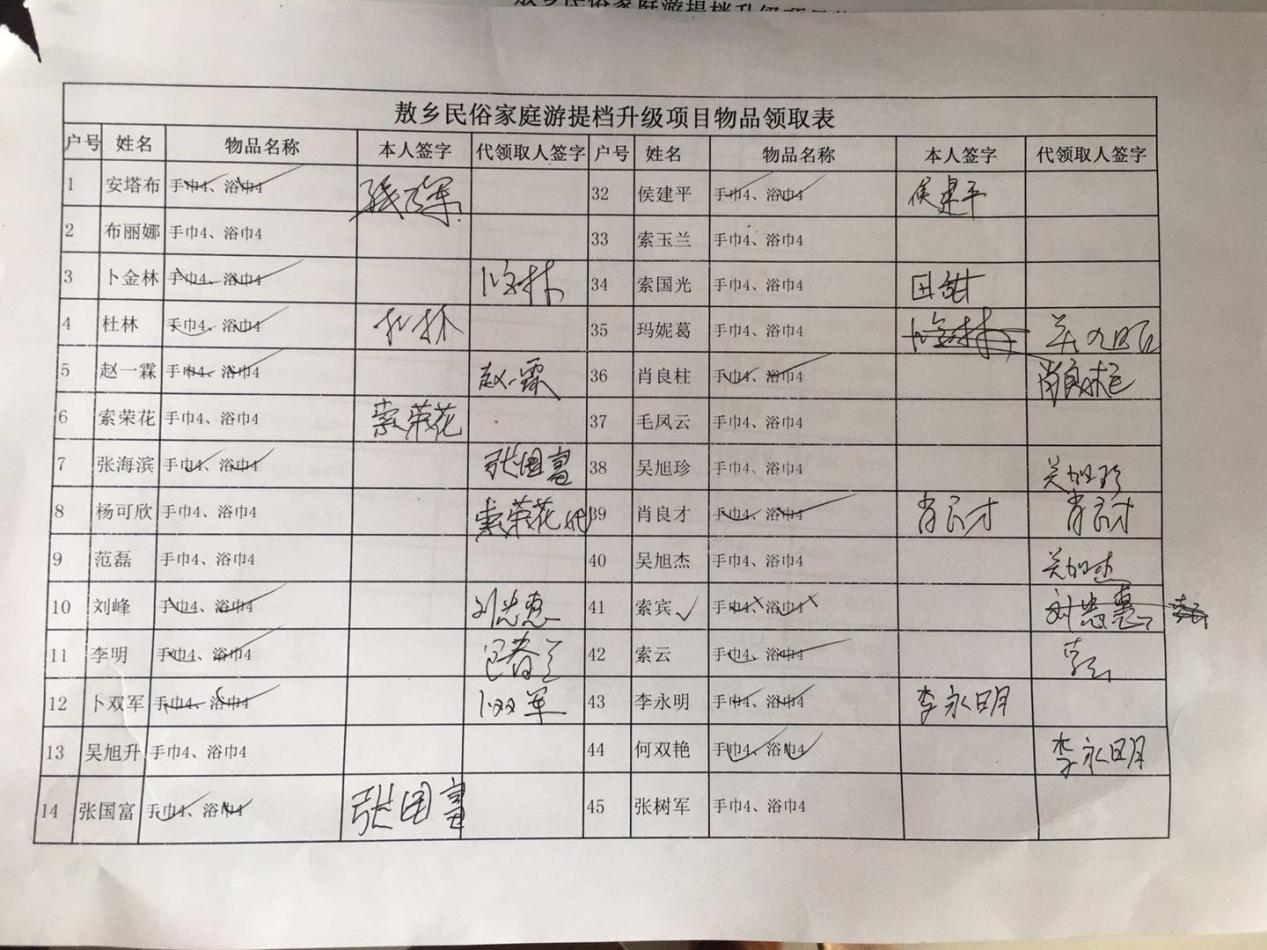 敖乡民俗家庭游提档升级项目物品领取表
户号 姓名 物品名称 本人签字 代领取人签字 户号 姓名 物品名称 本人签字 代领取人签字
1 安塔布 手巾4、浴巾4 32 侯建平 手巾4、浴巾4 侯建平
2 布丽娜 手巾4、浴巾4 33 索玉兰 手巾4、浴巾4
3 卜金林 手巾4、浴巾4 卜金林 34 索国光 手巾4、浴巾4
4 杜林 手巾4、浴巾4 杜林 35 玛妮葛 手巾4、浴巾4 卜金林
5 赵一霖 手巾4、浴巾4 赵一霖 36 肖良柱 手巾4、浴巾4 肖良柱
6 索荣花 手巾4、浴巾4 索荣花 37 毛凤云 手巾4、浴巾4
7 张海滨 手巾4、浴巾4 张国富 38 吴旭珍 手巾4、浴巾4 吴旭珍
8 杨可欣 手巾4、浴巾4 索荣花代 39 肖良才 手巾4、浴巾4 肖良才 肖良才
9 范磊 手巾4、浴巾4 40 吴旭杰 手巾4、浴巾4 吴旭杰
10 刘峰 手巾4、浴巾4 刘忠惠 41 索宾 手巾4、浴巾4 刘忠惠
11 李明 手巾4、浴巾4 包春兰 42 索云 手巾4、浴巾4 索云
12 卜双军 手巾4、浴巾4 卜双军 43 李永明 手巾4、浴巾4 李永明
13 吴旭升 手巾4、浴巾4 44 何双艳 手巾4、浴巾4 李永明
14 张国富 手巾4、浴巾4 张国富 45 张树军 手巾4、浴巾4